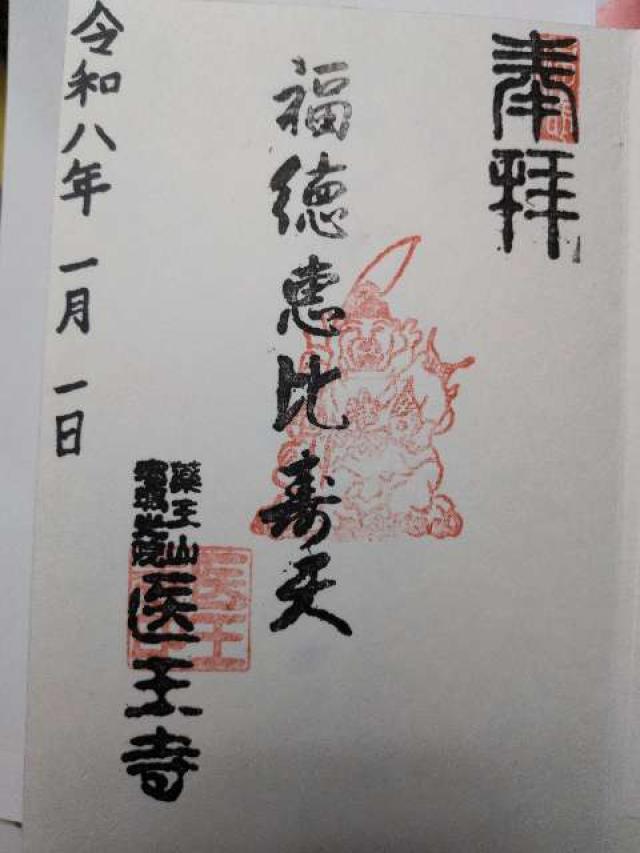 奉拝
福徳恵比寿天
薬王山
医王寺
令和八年 一月 一日